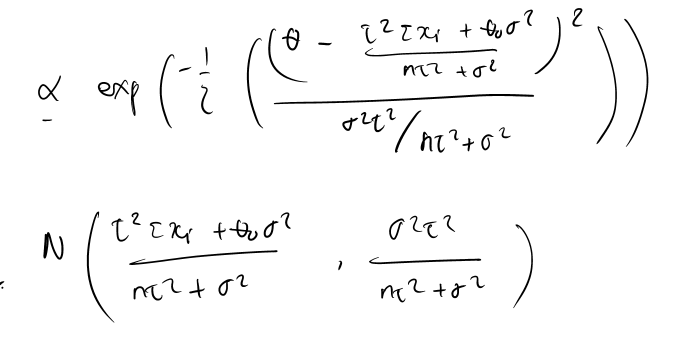 ∝ exp(-1/2 ((θ - (τ²Σxᵢ + θ₀σ²)/(nτ² + σ²))² / (σ²τ²/nτ²+σ²)))
N((τ²Σxᵢ + θ₀σ²)/(nτ² + σ²), σ²τ²/(nτ²+σ²))